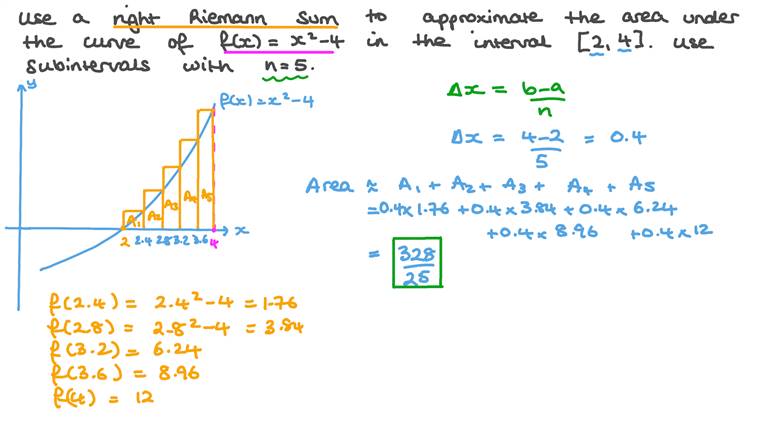 Use a right Riemann Sum to approximate the area under
the curve of f(x) = x² - 4 in the interval [2, 4]. Use
subintervals with n = 5.
y
f(x) = x² - 4
A₁ A₂ A₃ A₄ A₅
2 2.4 2.8 3.2 3.6 4 x
Δx = b-a/n
Δx = 4-2/5 = 0.4
Area ≈ A₁ + A₂ + A₃ + A₄ + A₅
= 0.4 × 1.76 + 0.4 × 3.84 + 0.4 × 6.24
+ 0.4 × 8.96 + 0.4 × 12
= 328/25
f(2.4) = 2.4² - 4 = 1.76
f(2.8) = 2.8² - 4 = 3.84
f(3.2) = 6.24
f(3.6) = 8.96
f(4) = 12